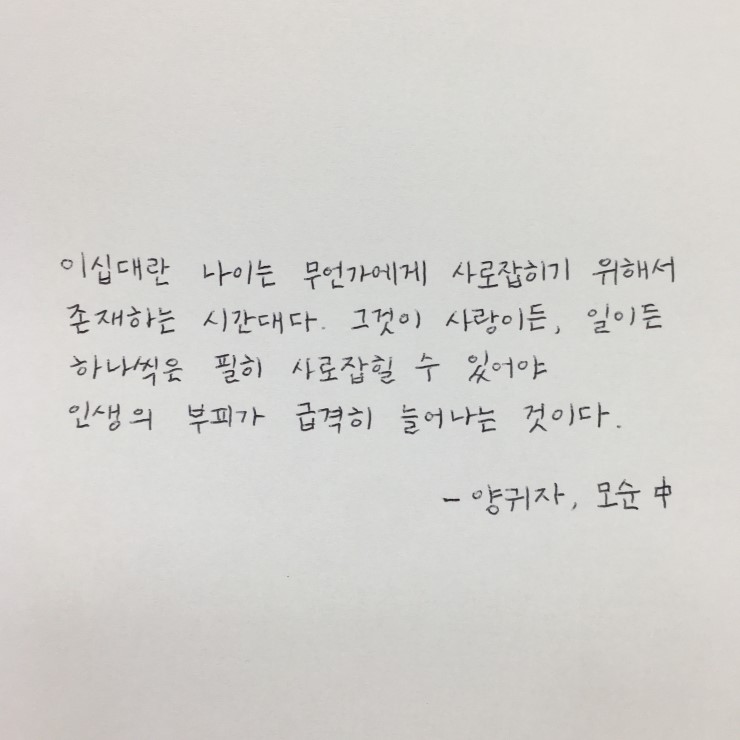 이십대란 나이는 무언가에게 사로잡히기 위해서
존재하는 시간대다. 그것이 사랑이든, 일이든
하나씩은 필히 사로잡힐 수 있어야
인생의 부피가 급격히 늘어나는 것이다.
- 양귀자, 모순 中